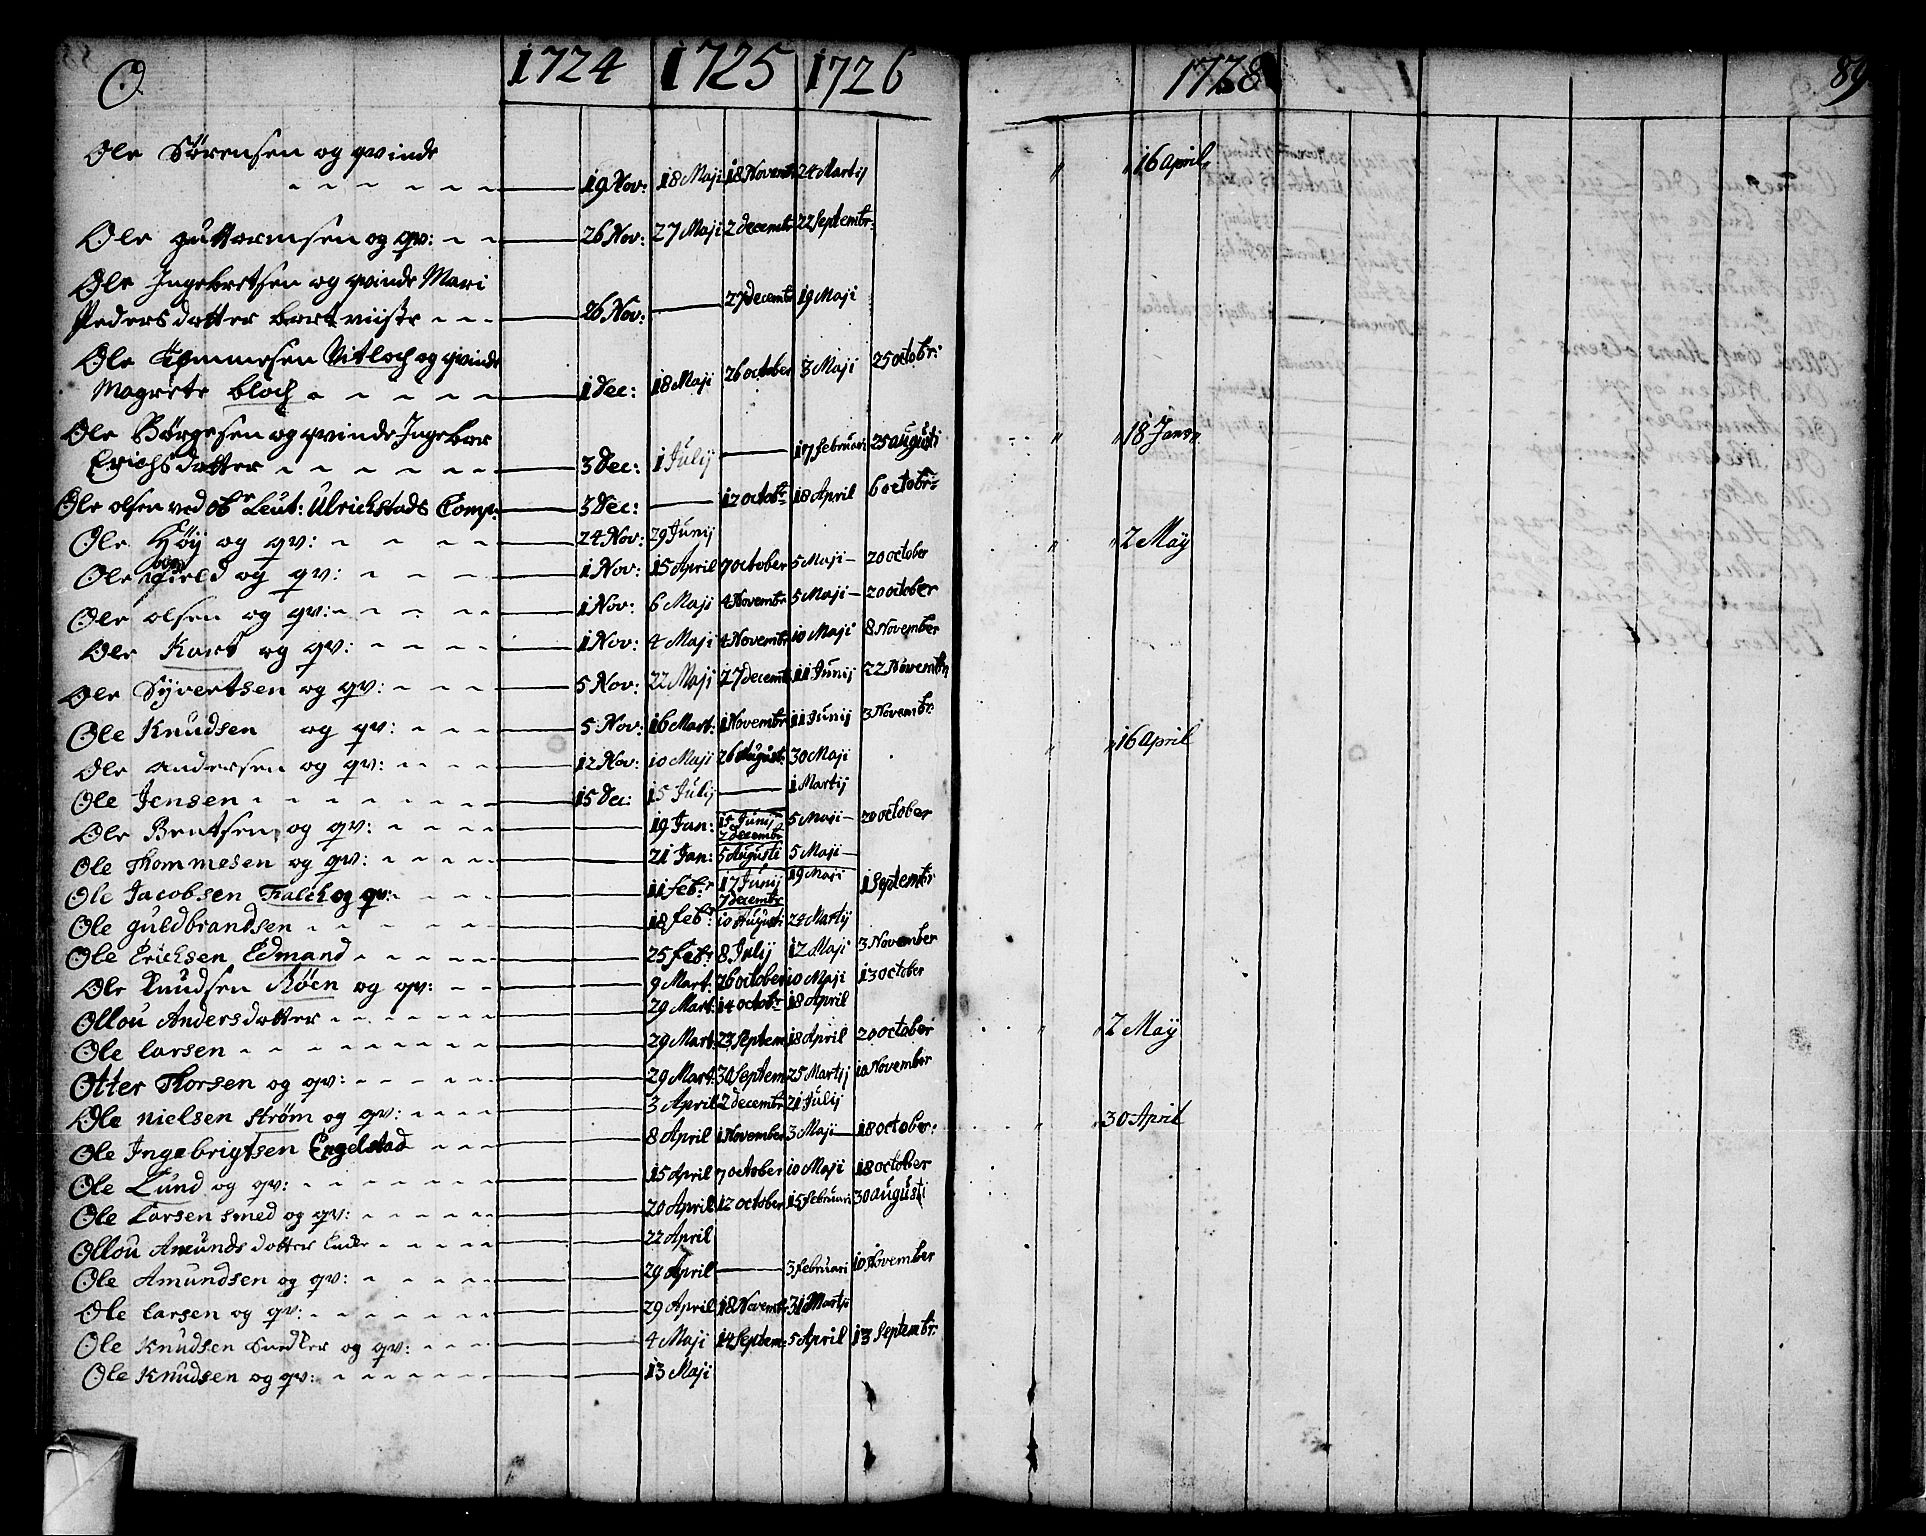 O. 1724 1725 1726 1728 89
Ole Sörensen og qvinde
19 Nov: 18 Maji 18 Novembr 24 Martij " " 16 april
Ole guttormsen og qv: 26 Nov: 27 Maji 2 decembr 22 Septembr:
Ole Ingebretsen og qvinde Mari
Pedersdatter 26 Nov: 27 decembr 19 Maji
Ole Tommesen Vitloch og qvinde
Magrete bloch 1 Dec: 18 Maji 26 october 8 Maji 25 octobr:
Ole Börgesen og qvinde Ingebor
Erichsdatter 3 Dec: 1 Julij 17 februari 25 augusti " " 18 Janv
Ole olsen ved obr Leut: Ulrichstads Comp: 3 Dec: 12 octobr 18 April 6 octobr:
Ole Höy og qv: 24 Nov: 29 Junij " " 2 Maÿ
Ole og qv: 1 Nov: 15 April 7 october 5 Maji 20 october
Ole olsen og qv: 1 Nov: 6 Maji 4 Novembr 5 Maji 20 october
Ole Kort og qv: 1 Nov: 4 Maji 4 Novembr 10 Maji 8 November
Ole Syvertsen og qv: 5 Nov: 22 Maji 27 decembr 11 Junij 22 Novembr
Ole Knudsen og qv: 5 Nov: 16 Mart: 1 Novembr 11 Junij 3 Novembr: " " 16 April
Ole andersen og qv: 12 Nov: 10 Maji 26 August: 30 Maji
Ole Jensen 15 Dec: 15 Julij 1 Martij
Ole Bentsen og qv: 19 Jan: 15 Junij 2 decembr 5 Maji 20 october
Ole Thommesen og qv: 21 Jan: 5 Augusti 5 Maji
Ole Jacobsen Falch og qv: 11 febr 17 Junij 7 decembr 19 Maji 1 Septembr
Ole guldbrandsen 18 febr 10 August: 24 Martij
Ole Ericksen Edmand 25 febr 8 Julij 12 Maji 3 November
Ole Knudsen Röen og qv: 9 Mart: 26 october 10 Maji 13 october
Ollou Andersdatter 29 Mart: 14 octobr 18 April
Ole larsen 29 Mart: 23 Septem 18 April 20 october " " 2 Maÿ
Otter Thorsen og qv: 29 Mart: 30 Septem 25 Martij 10 November
Ole nielsen Ström og qv: 3 April 2 decembr 21 Julij
Ole Ingebrigtsen Engelstad 8 April 1 November 3 Maji 18 october: " " 30 April
Ole Lund og qv: 15 April 7 october 10 Maji 18 october
Ole Larsen smed og qv: 20 April 12 october 15 februari 30 augusti
Ollou Amundsdatter Encke 22 April
Ole Amundsen og qv: 29 April 3 februari 10 November
Ole larsen og qv: 29 April 18 Novembr 31 Martij
Ole Knudsen og qv: 4 Maji 14 Septem: 5 April 13 Septembr:
Ole Knudsen og qv: 13 Maji